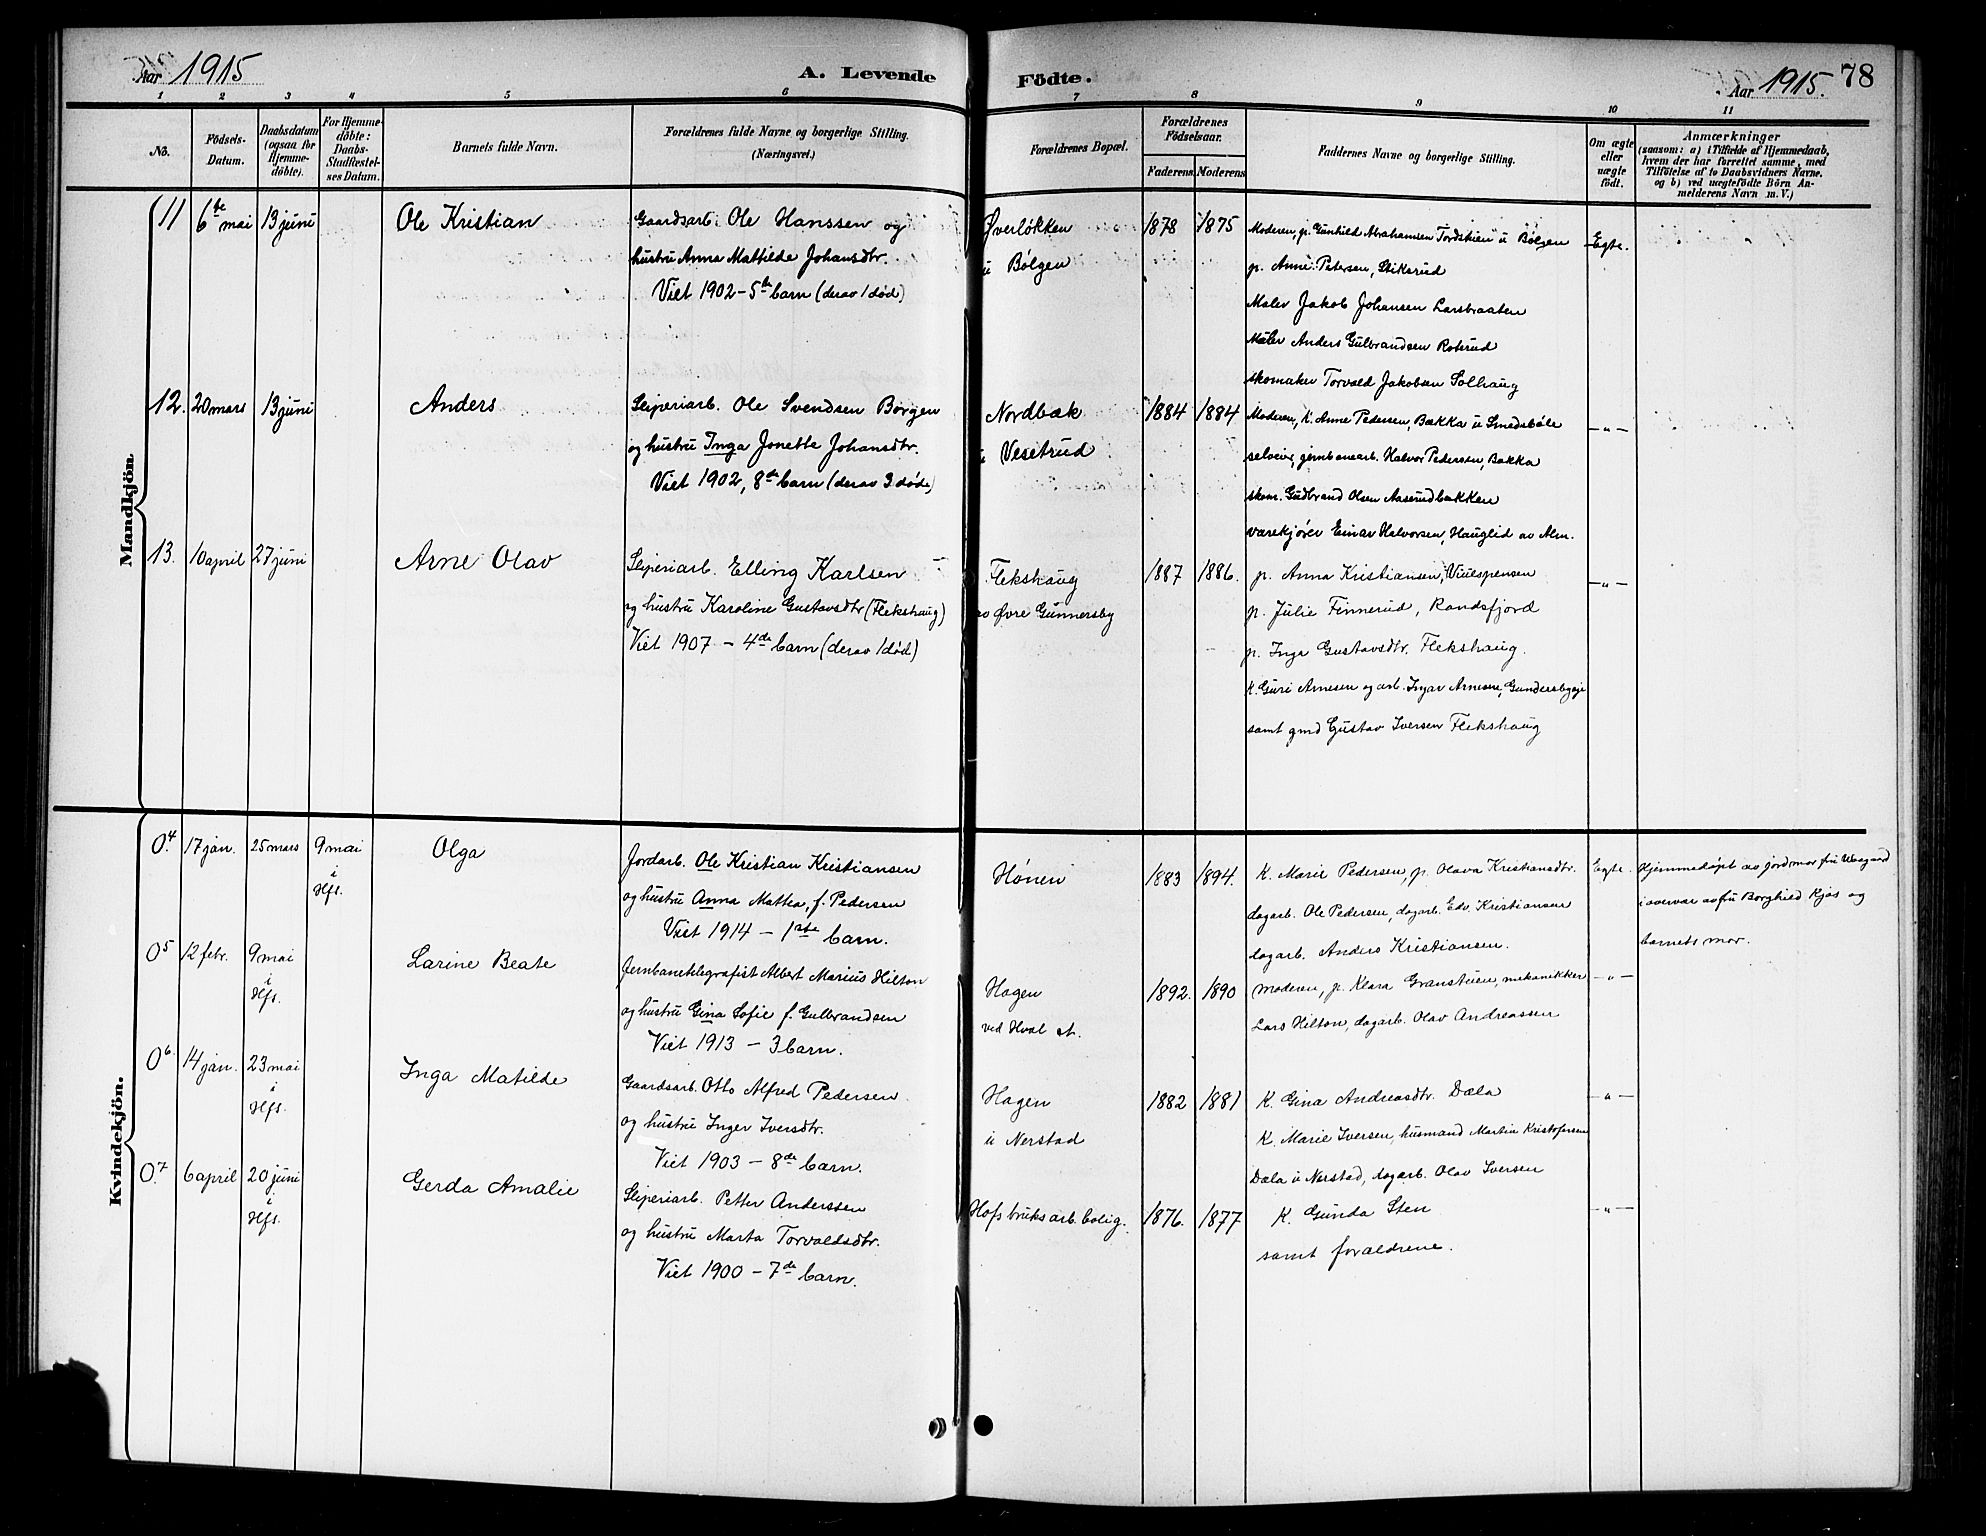 Aar 1915
A. Levende
Födte.
Aar 1915.
78
1 2 3 4 5 6 7 8 9 10 11
No.
Födsels-
Datum.
Daabsdatum
(ogsaa for
Hjemme-
döbte).
For Hjemme-
döbte:
Daabs-
Stadfæstel-
ses Datum.
Barnets fulde Navn.
Forældrenes fulde Navne og borgerlige Stilling.
(Næringsvei.)
Forældrenes Bopæl.
Forældrenes
Födselsaar.
Faderens
Moderens
Faddernes Navne og borgerlige Stilling.
Om ægte
eller
uægte
født.
Anmærkninger
(saasom: a) i Tilfælde af Hjemmedaab,
hvem der har forrettet samme, med
Tilföielse af to Daabsvidners Navne,
og b) ved uægtefödte Börn An-
melderens Navn m. V.)
Mandkjön
11
6te mai
13 juni
Ole Kristian
Gaardsarb. Ole Hanssen og
hustru Anna Mathilde Johansdtr.
Viet 1902 - 5te barn (derav 1 død)
Øverløkken
u Bølgen
1878
1875
Moderen, p. Gunhild Abrahamsen Tordskien u Bølgen
p. Anne Petersen, Stiksrud
Maler Jakob Johansen Larsbraaten
Maler Anders Gulbrandsen Roterud
skomaker Torvald Jakobsen Solhaug
Egte.
12.
20 mars
13 juni
Anders
Sliperiarb. Ole Svendsen Borgen
og hustru Inga Jonette Johansdtr.
Viet 1902, 8de barn (derav 3 døde)
Nordbæk
u Vesetrud
1884
1884
Moderen, K. Anne Pedersen, Bækka u Smedsbøle
selveier, jernbanearb. Halvor Pedersen, Bakka
skom. Gudbrand Olsen Aaserudbækken
varekjører Einar Halvorsen, Hauglid av Alm.
—„—
13.
10 april
27 juni
Arne Olav
Sliperiarb. Elling Karlsen
og hustru Karoline Gustavsdtr (Flekshaug)
Viet 1907 - 4de barn (derav 1 død)
Flekshaug
av Øvre Gunnersby
1887
1886.
p. Anna Kristiansen,
p. Julie Finnerud, Randsfjord
p. Inga Gustavsdtr. Flekshaug.
K. Guri Arnesen og arb. Ingar Arnesen, Gundersbyeje
samt gmd Gustav Iversen Flekshaug
—„—
Kvindekjön.
04.
17 jan.
25 mars
9 mai
i
Hfs.
Olga
Jordarb. Ole Kristian Kristiansen
og hustru Anna Mathea, f. Pedersen
Viet 1914 - 1ste barn.
Hønen
1883
1894.
K. Marie Pedersen, p. Olava Kristiansdtr.
dagarb. Ole Pedersen, dagarb. Edv. Kristiansen
dagarb. Anders Kristiansen.
Egte.
Hjemmedøpt av jordmor fru
i overvær av fru Borghild Kjøs og
barnets mor.
05
12 febr.
9 mai
i
Hfs.
Larine Beate
Jernbanetelegrafist Albert Marius Hilton
og hustru Gina Sofie f. Gulbrandsen
Viet 1913 - 3 barn.
Hagen
ved Hval st.
1892.
1890
Moderen, p. Klara Granstuen, mekanikker
Lars Hilton, dagarb. Olav Andreassen
—„—
06.
14 jan.
23 mai
i
Hfs.
Inga Matilde
Gaardsarb. Otto Alfred Pedersen
og hustru Inger Iversdtr.
Viet 1903 - 8de barn.
Hagen
u Nerstad
1882
1881
K. Gina Andreasdtr. Dæla
K. Marie Iversen, husmand Martin Kristofersen
Dæla u Nerstad, dagarb. Olav Iversen
—„—
07.
6 april
20 juni
i
Hfs.
Gerda Amalie
Sliperiarb. Petter Anderssen
og hustru Marta Torvaldsdtr.
Viet 1900 - 7de barn.
Hofs bruks arb. bolig.
1876.
1877
K. Gunda Sten
samt forældrene.
—„—